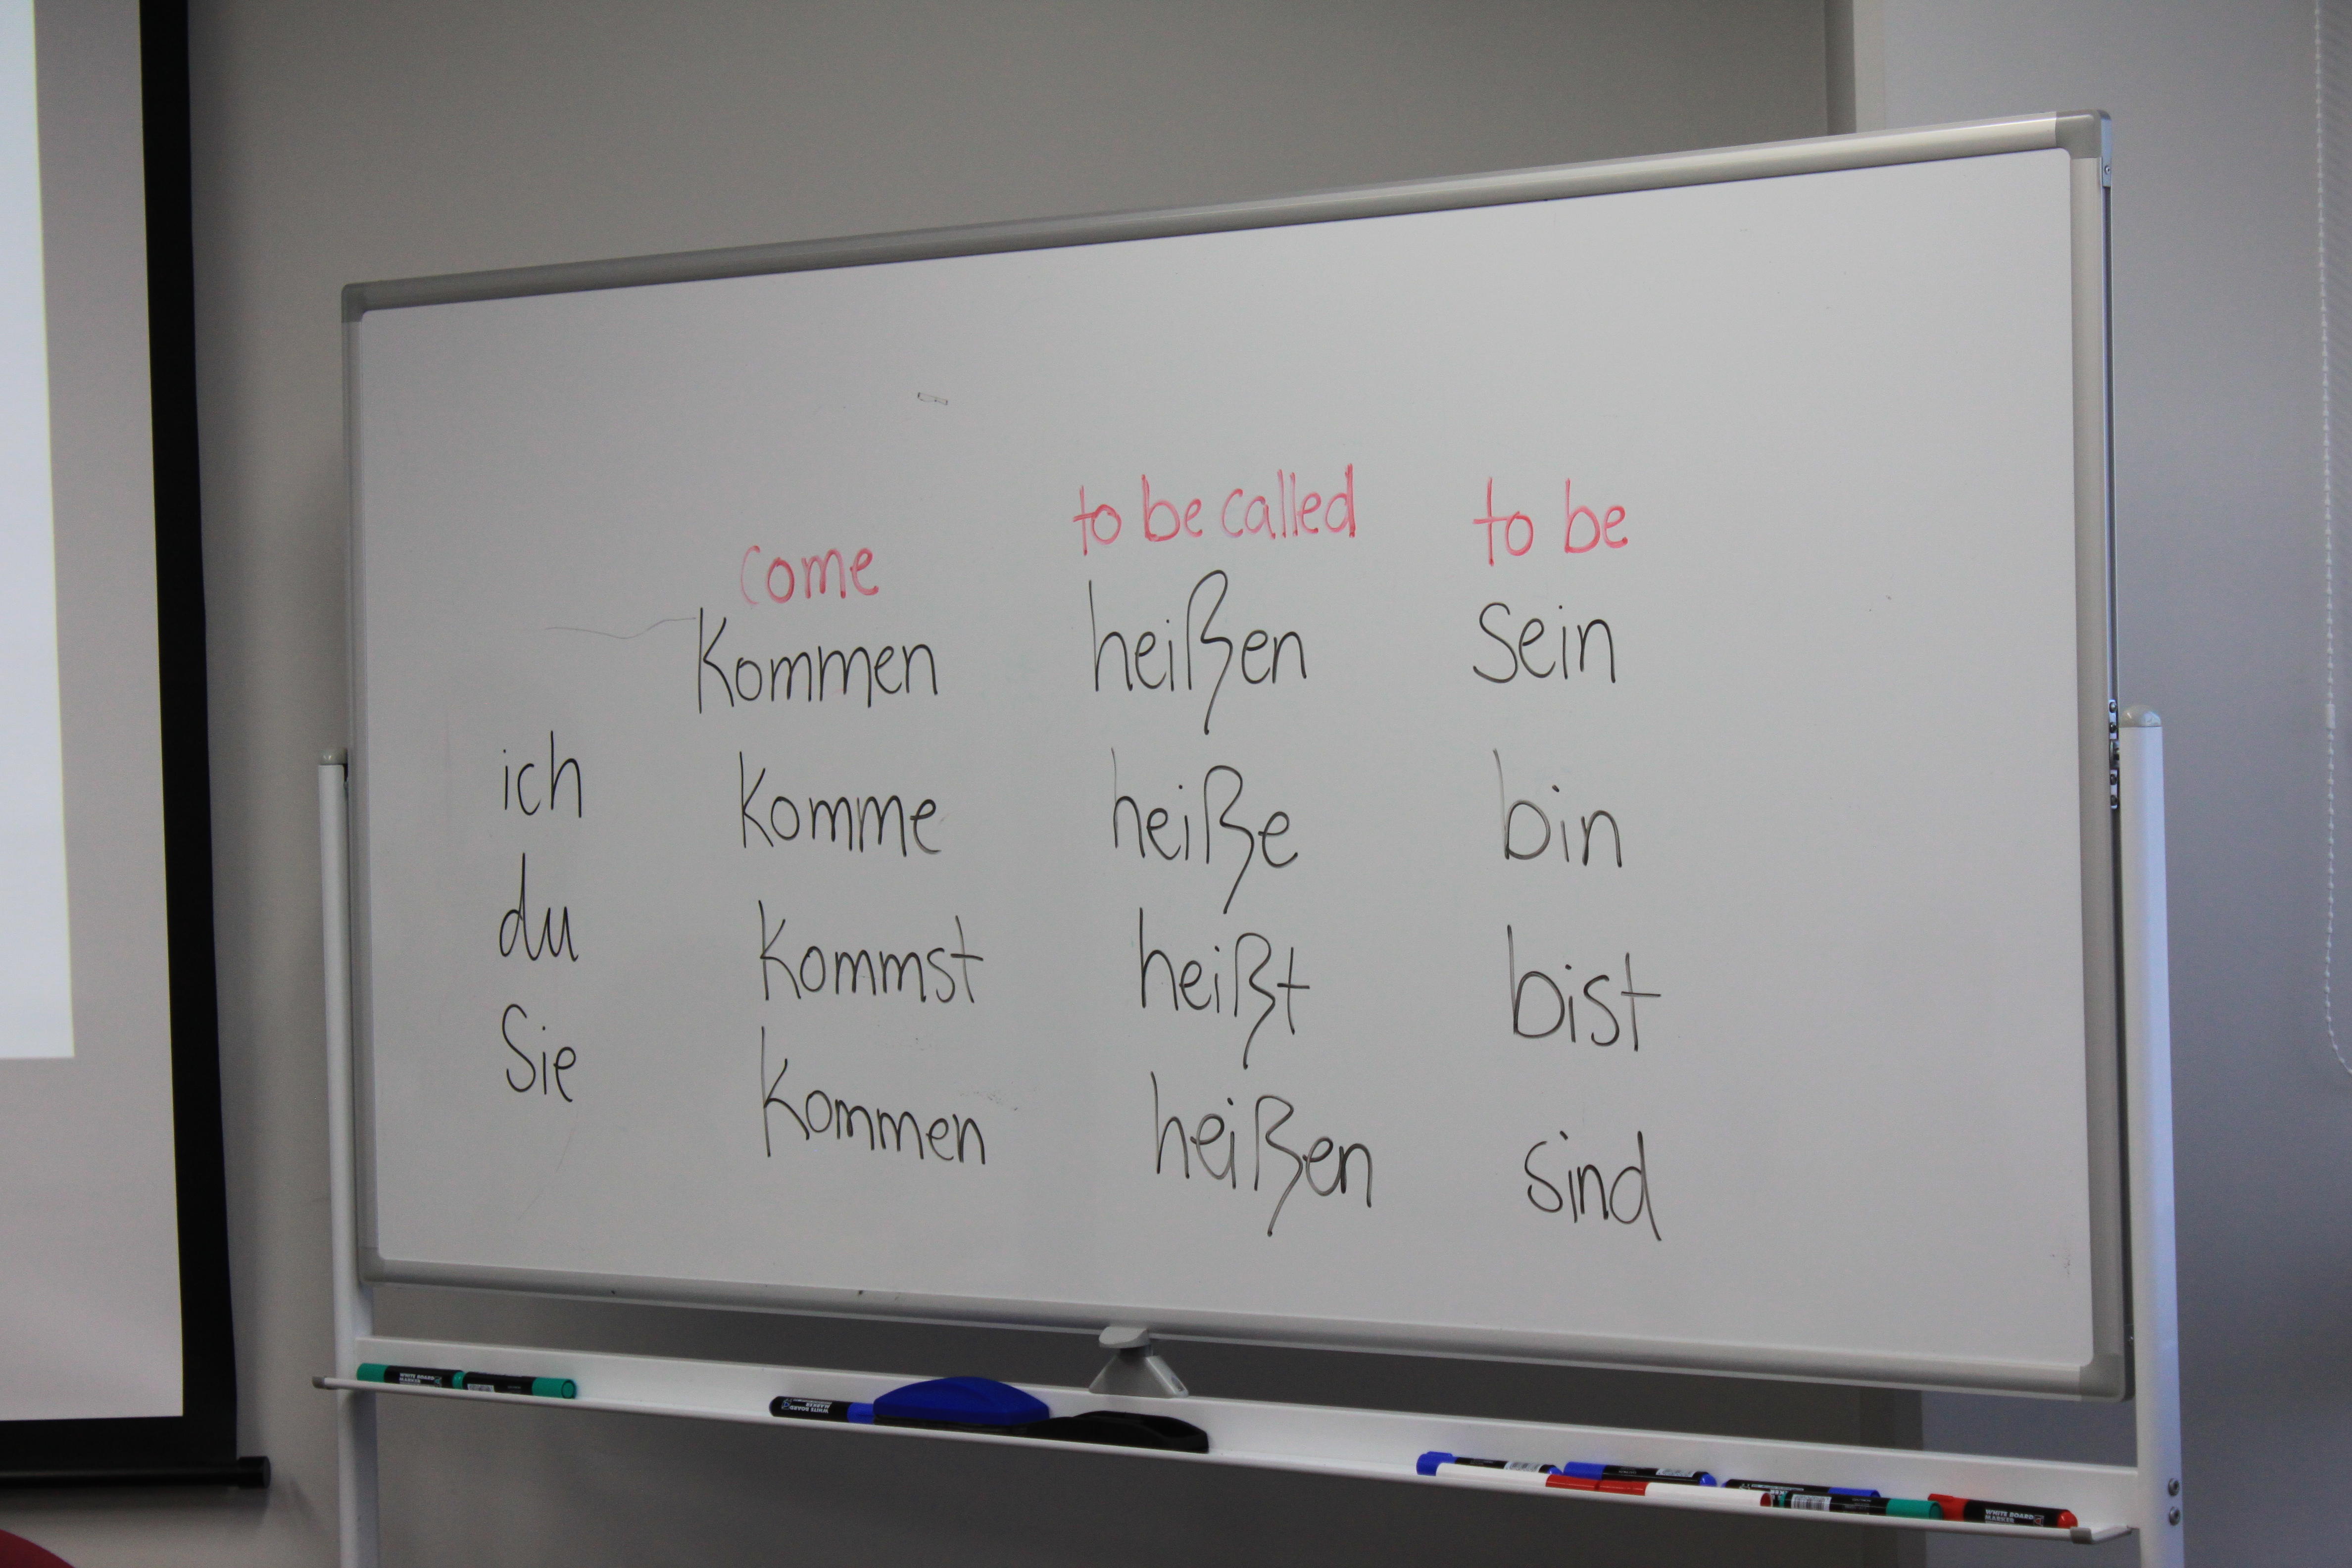 come to be called to be
Kommen heißen sein
ich Komme heiße bin
du Kommst heißt bist
Sie Kommen heißen sind
WHITE BOARD MARKER
WHITE BOARD MARKER
WHITE BOARD MARKER